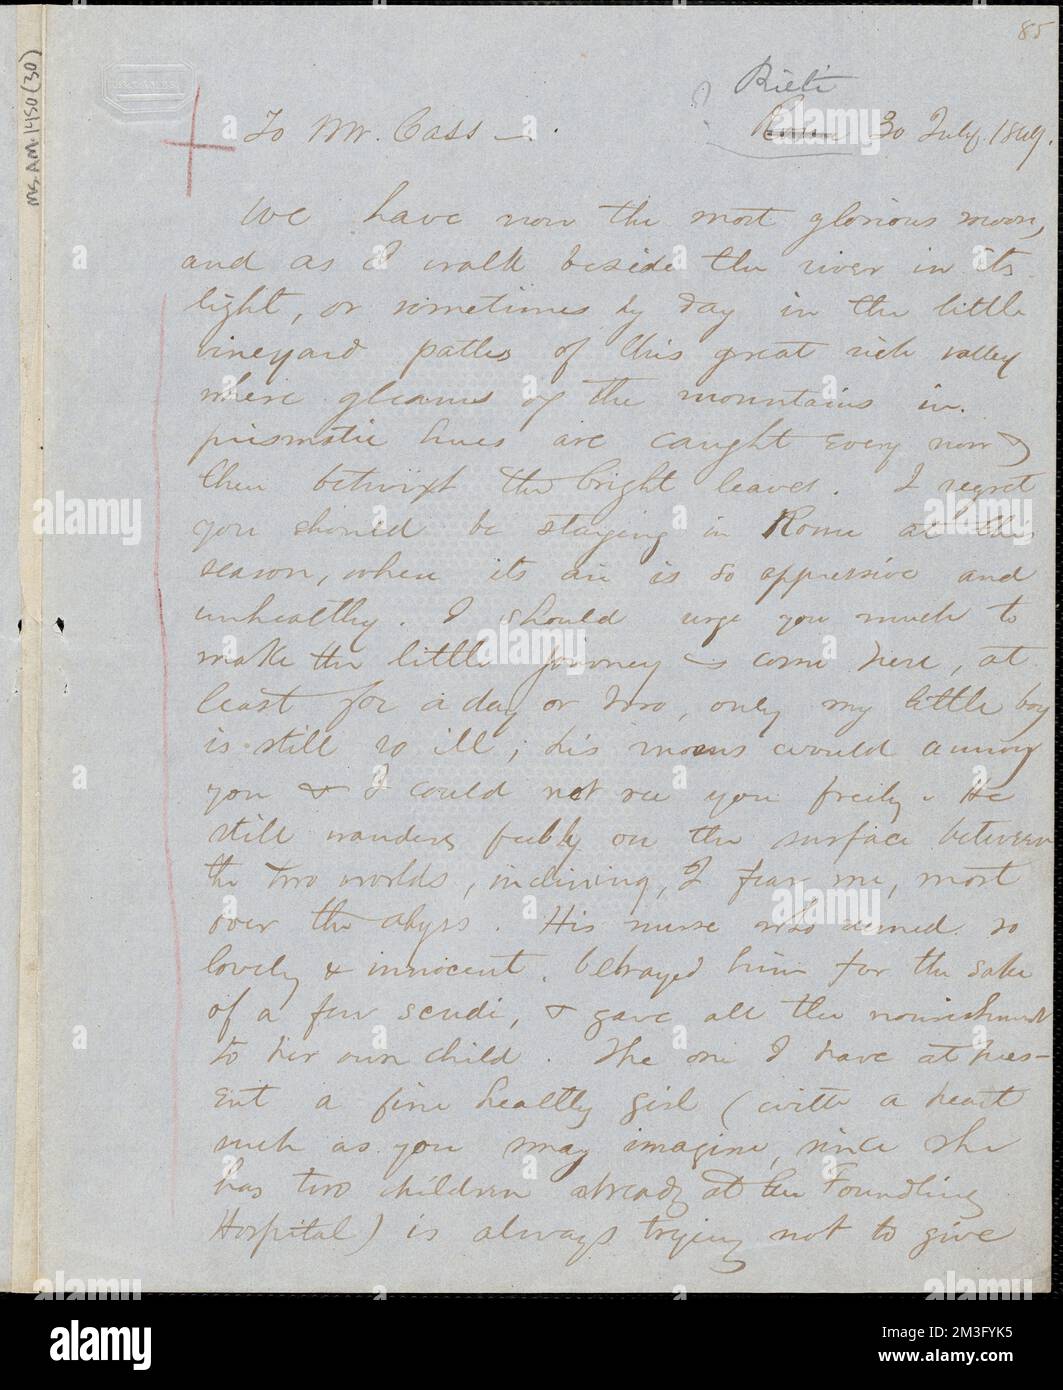 85
Ms. Am. 1450 (30)
Rieti
To Mr. Cass —. Rome 30 July. 1849.
We have now the most glorious moon,
and as I walk beside the river in its
light, or sometimes by day in the little
vineyard paths of this great rich valley
where gleams of the mountains in
prismatic hues are caught every now &
then betwixt the bright leaves. I regret
you should be staying in Rome at this
season, when its air is so oppressive and
unhealthy. I should urge you much to
make the little journey & come here, at
least for a day or two, only my little boy
is still so ill; his moans would annoy
you & I could not see you freely. He
still wanders feebly on the surface between
the two worlds, inclining, I fear me, most
over the abyss. His nurse who seemed so
lovely & innocent, betrayed him for the sake
of a few scudi, & gave all the nourishment
to her own child. The one I have at pres-
ent a fine healthy girl (with a heart
such as you may imagine, since she
has two children already at the Foundling
Hospital) is always trying not to give
alamy
Image ID: 2M3FYK5
www.alamy.com